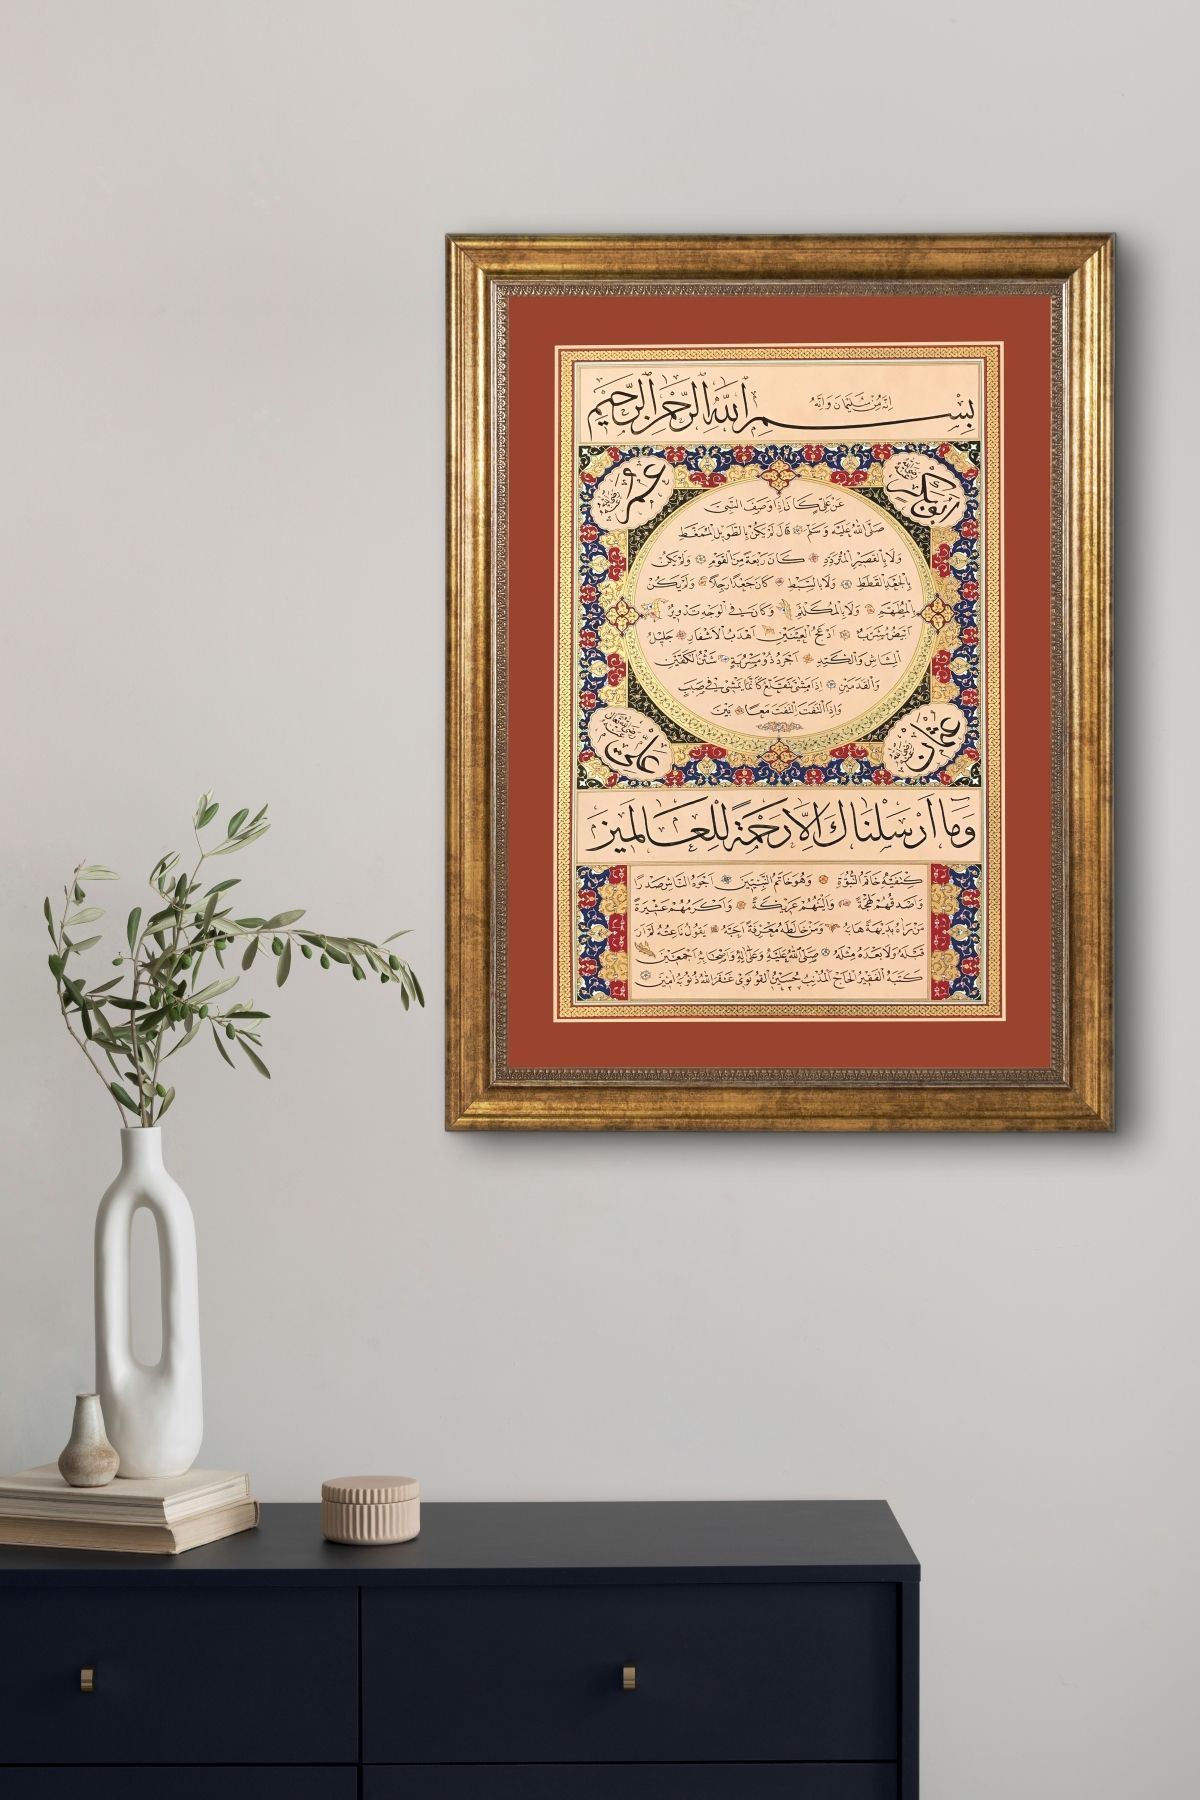 إنه من سليمان وإنه
بسم الله الرحمن الرحيم
ابوبكر رضي الله عنه
عمر رضي الله عنه
عن علي كان اذا وصف النبي
صلى الله عليه وسلم قال لم يكن بالطويل الممغط
ولا بالقصير المتردد كان ربعة من القوم ولم يكن
بالجعد القطط ولا بالسبط كان جعدا رجلا ولم يكن
بالمطهم ولا بالمكلثم وكان في الوجه تدوير
ابيض مشرب ادعج العينين اهدب الاشفار جليل
المشاش والكتد اجرد ذو مسربة شثن الكفين
والقدمين اذا مشى تقلع كانما يمشي في صبب
واذا التفت التفت معا بين
عثمان رضي الله عنه
علي رضي الله عنه
وما أرسلناك إلا رحمة للعالمين
كتفيه خاتم النبوة وهو خاتم النبيين اجود الناس صدرا
واصدقهم لهجة والينهم عريكة واكرمهم عشيرة
من رآه بديهة هابه ومن خالطه معرفة احبه يقول ناعته لم ار
قبله ولا بعده مثله صلى الله عليه وعلى آله واصحابه اجمعين
كتبه الفقير الحاج المذنب حسين القونوي غفر الله ذنوبه آمين